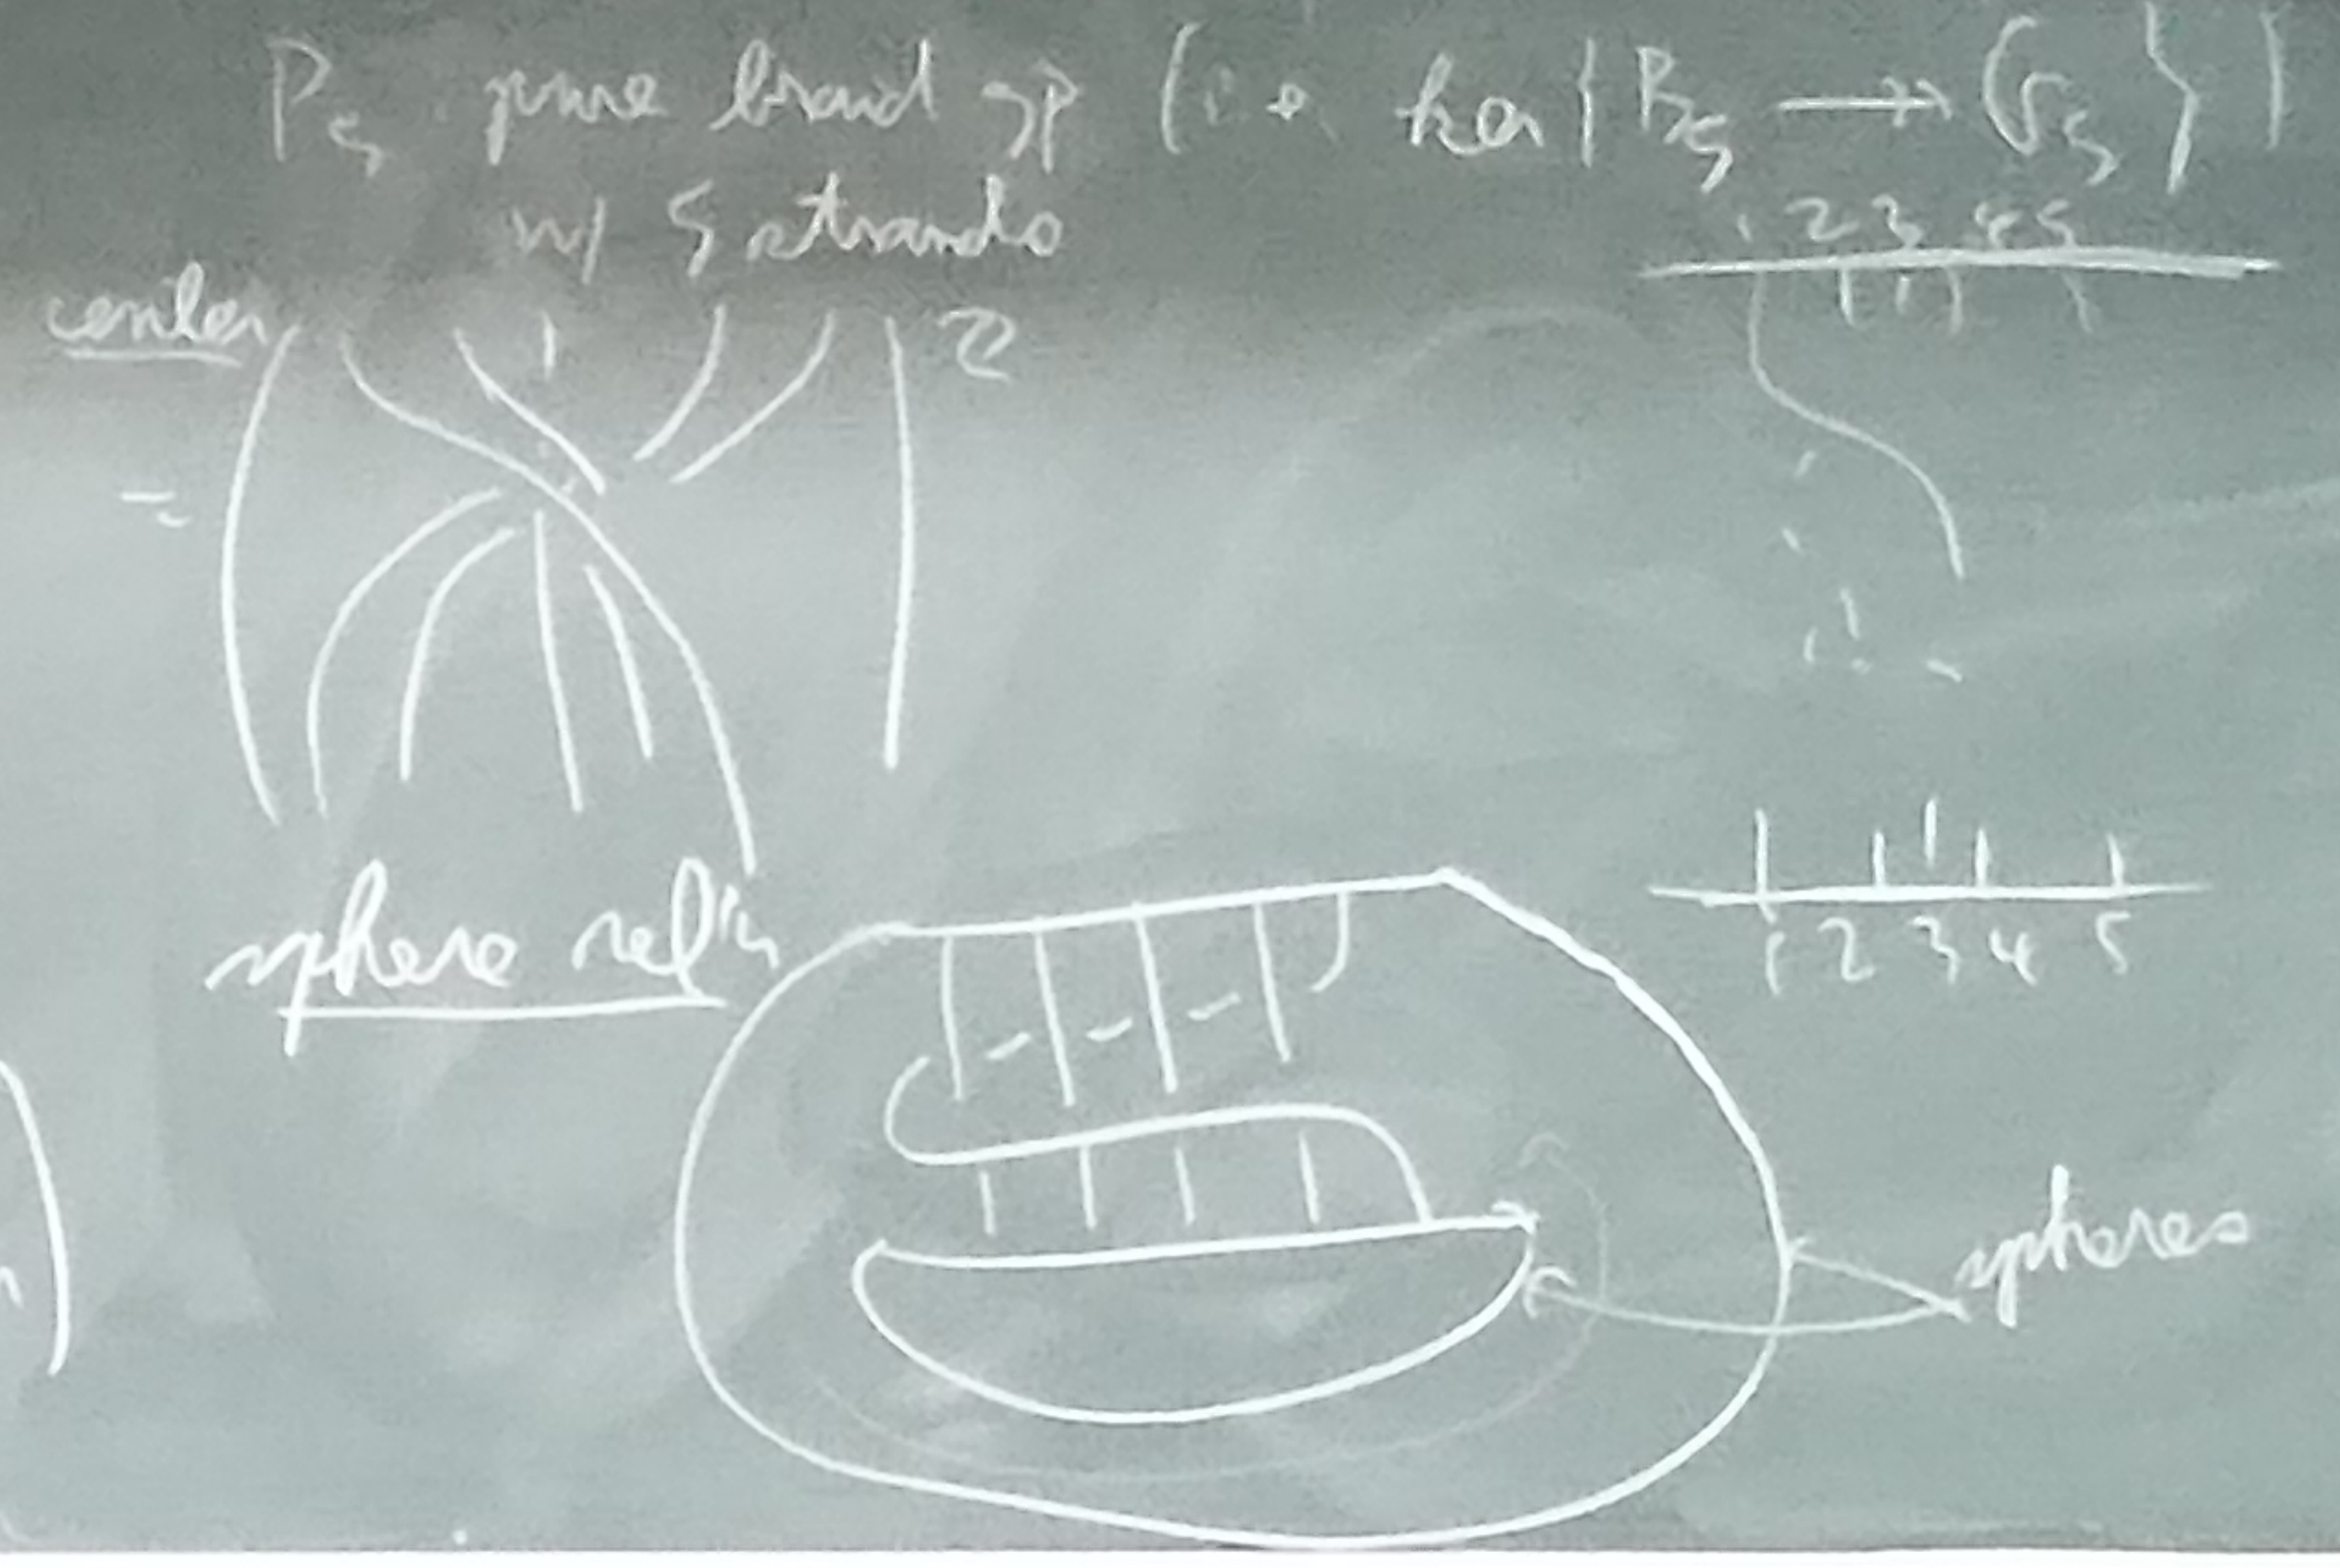 P₅ pure braid gp (i.e. ker { B₅ ↠ 𝔖₅ } )
w/ 5 strands
1 2 3 4 5
center
2
=
sphere rel'n
1 2 3 4 5
spheres